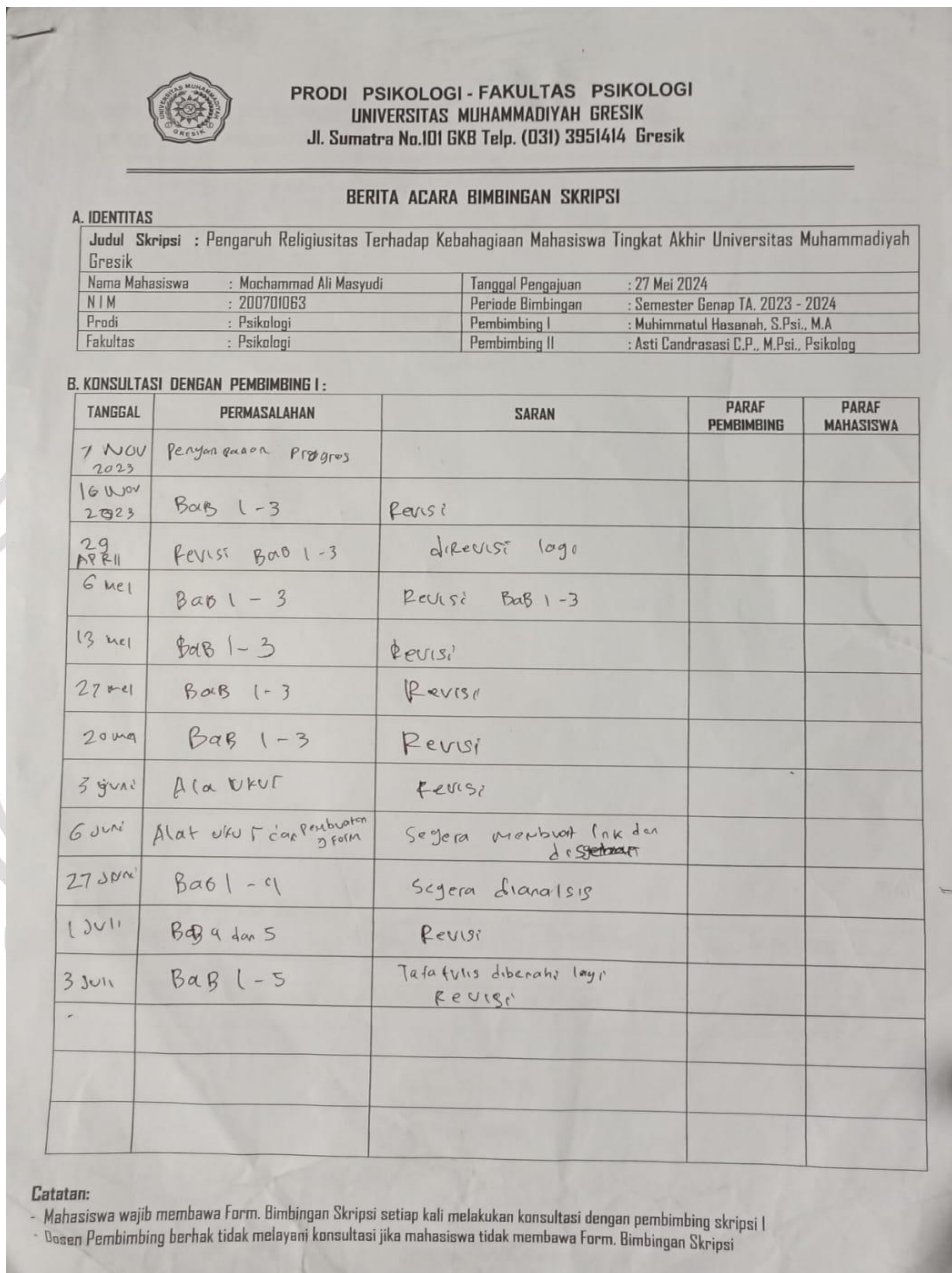 UNIVERSITAS MUHAMMADIYAH
GRESIK
PRODI PSIKOLOGI - FAKULTAS PSIKOLOGI
UNIVERSITAS MUHAMMADIYAH GRESIK
Jl. Sumatra No.101 GKB Telp. (031) 3951414 Gresik
BERITA ACARA BIMBINGAN SKRIPSI
A. IDENTITAS
Judul Skripsi : Pengaruh Religiusitas Terhadap Kebahagiaan Mahasiswa Tingkat Akhir Universitas Muhammadiyah
Gresik
Nama Mahasiswa : Mochammad Ali Masyudi Tanggal Pengajuan : 27 Mei 2024
N I M : 200701063 Periode Bimbingan : Semester Genap TA. 2023 - 2024
Prodi : Psikologi Pembimbing I : Muhimmatul Hasanah, S.Psi., M.A
Fakultas : Psikologi Pembimbing II : Asti Candrasasi C.P., M.Psi., Psikolog
B. KONSULTASI DENGAN PEMBIMBING I :
TANGGAL PERMASALAHAN SARAN PARAF PEMBIMBING PARAF MAHASISWA
7 NOV 2023 Progres
16 Nov 2023 BaB 1-3 Revisi
29 APRIl Revisi BaB 1-3 direvisi lagi
6 Mei BaB 1 - 3 Revisi BaB 1-3
13 mei BaB 1-3 Revisi
27 mei BaB 1-3 Revisi
20 BaB 1-3 Revisi
3 juni Ala Ukur Revisi
6 Juni Alat ukur dan Pembuatan g form Segera membuat link dan
27 Juni BaB 1-4 Segera dianalsis
1 Juli BaB 4 dan 5 Revisi
3 Juli BaB 1-5 Tata tulis lagi
Revisi
Catatan:
- Mahasiswa wajib membawa Form. Bimbingan Skripsi setiap kali melakukan konsultasi dengan pembimbing skripsi I
- Dosen Pembimbing berhak tidak melayani konsultasi jika mahasiswa tidak membawa Form. Bimbingan Skripsi